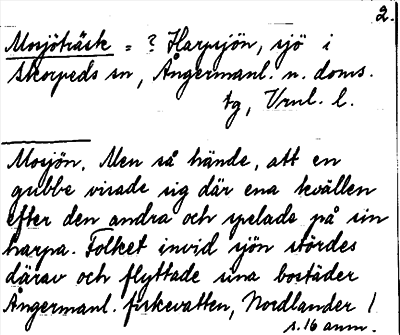 2.
Mosjöträsk = ? Harpsjön, sjö i
Skorpeds sn, Ångermanl. n. doms.
tg, Vrnl. l.
Mosjön. Men så hände, att en
gubbe visade sig där ena kvällen
efter den andra och spelade på sin
harpa. Folket invid sjön stördes
därav och flyttade sina bostäder
Ångermanl. fiskevatten, Nordlander 1
s. 16 anm.